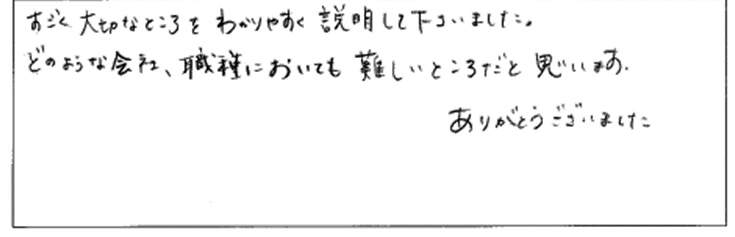 すごく大切なところをわかりやすく説明して下さいました。
どのような会社、職種においても難しいところだと思います。
ありがとうございました